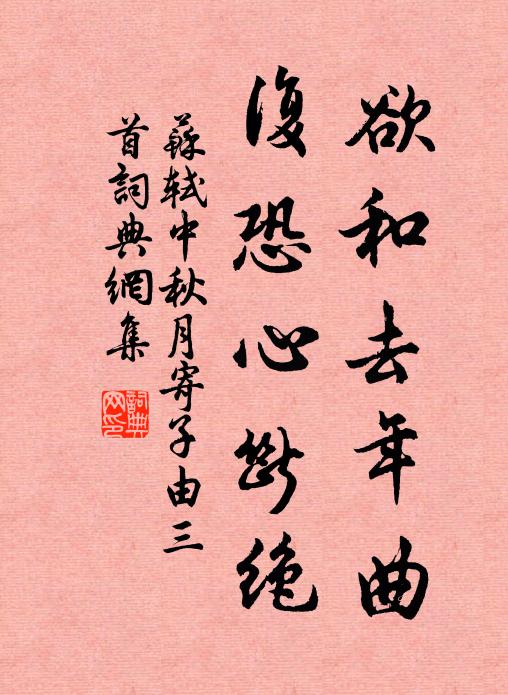 欲和去年曲
復恐心斷絶
蘇軾中秋月寄子由三
首詞典網集
詞典
网印